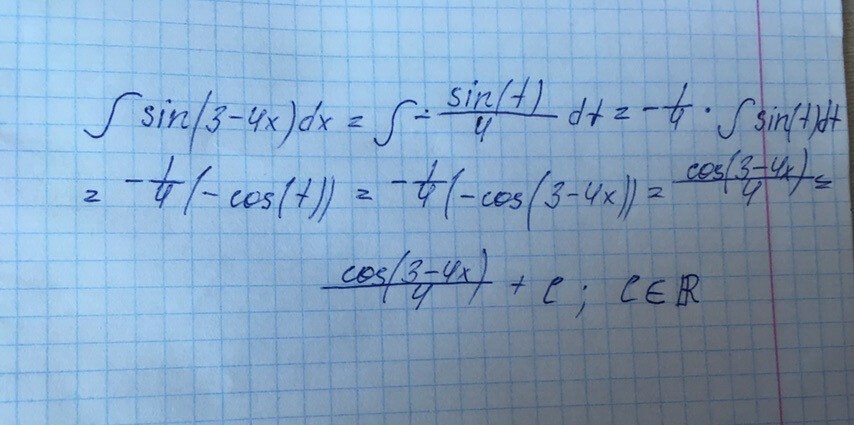 ∫ sin(3-4x)dx = ∫ - sin(t)/4 dt = - 1/4 · ∫ sin(t)dt
= - 1/4 (-cos(t)) = - 1/4 (-cos(3-4x)) = cos(3-4x)/4 =
cos(3-4x)/4 + C ; C∈ℝ